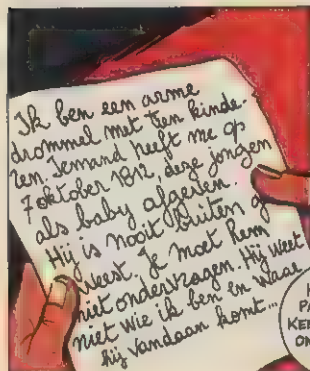 Ik ben een arme
drommel met tien kinde-
ren. Iemand heeft me op
7 oktober 1812, deze jongen
als baby afgeven.
Hij is nooit buiten g
weest. Je moet hem
niet ondervragen. Hij weet
niet wie ik ben en waar
hij vandaan komt...